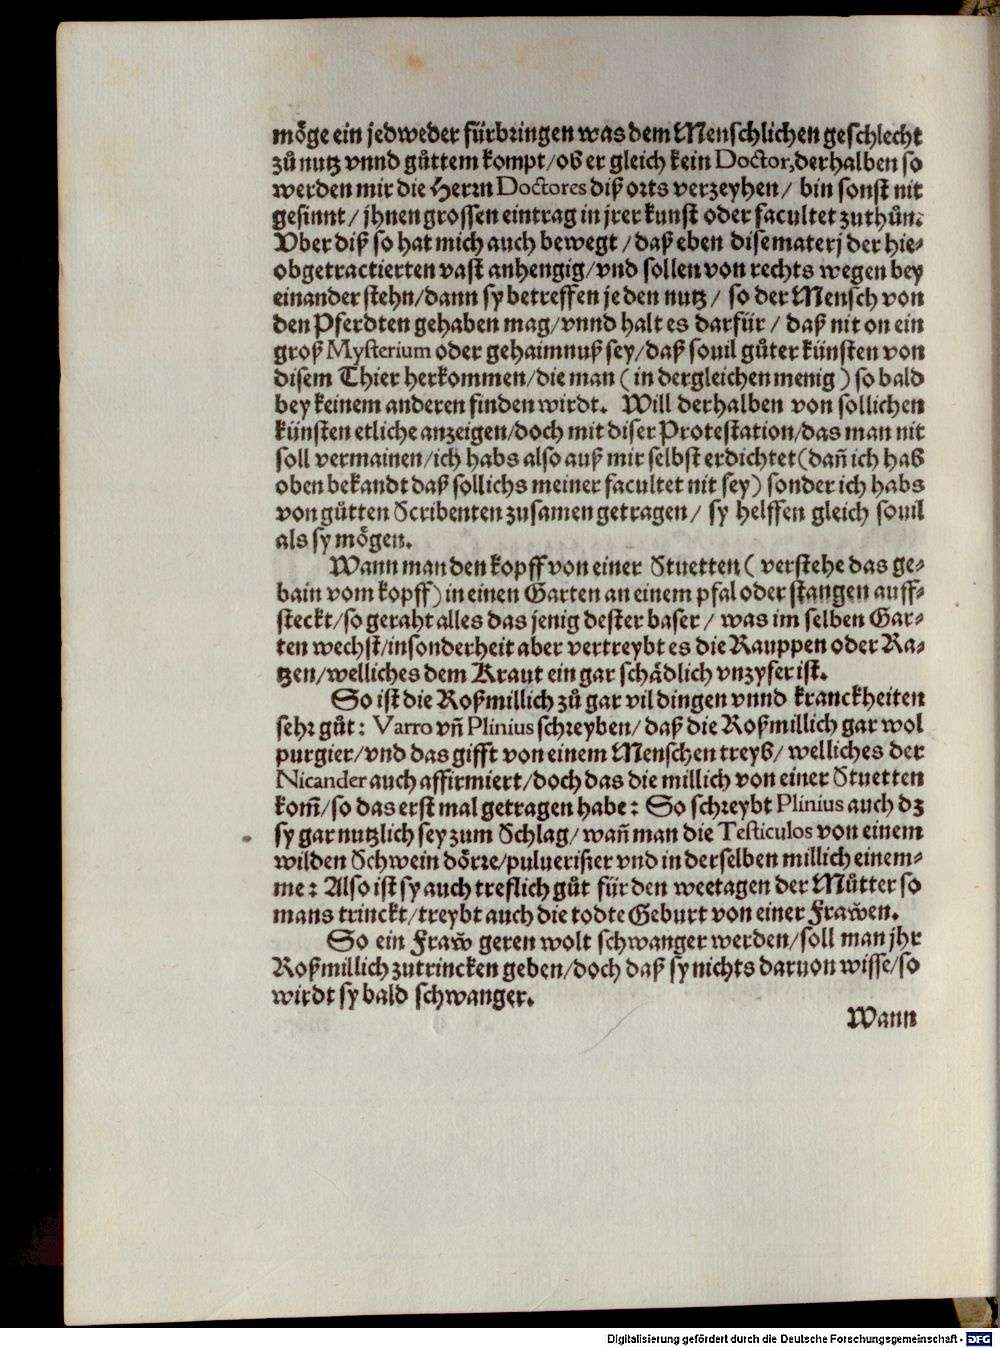 möge ein jedweder fürbringen was dem Menschlichen geschlecht
zů nutz vnnd gůttem kompt/ob er gleich kein Doctor, derhalben so
werden mir die Herrn Doctores diß orts verzeyhen/ bin sonst nit
gesinnt/ jhnen grossen eintrag in jrer kunst oder facultet zuthůn.
Vber diß so hat mich auch bewegt /daß eben dise materj der hie-
obgetractierten vast anhengig/vnd sollen von rechts wegen bey
einander stehn/dann sy betreffen jeden nutz/ so der Mensch von
den Pferdten gehaben mag/vnnd halt es darfür/ daß nit on ein
groß Mysterium oder gehaimnuß sey/daß souil gůter künsten von
disem Thier herkommen/die man (in dergleichen menig) so bald
bey keinem anderen finden wirdt. Will derhalben von sollichen
künsten etliche anzeigen/doch mit diser Protestation/das man nit
soll vermainen/ich habs also auß mir selbst erdichtet(dañ ich hab
oben bekandt daß sollichs meiner facultet nit sey) sonder ich habs
von gůtten Scribenten zusamen getragen/ sy helffen gleich souil
als sy mögen.
Wann man den kopff von einer Stuetten (verstehe das ge-
bain vom kopff) in einen Garten an einem pfal oder stangen auff-
steckt/so geraht alles das jenig dester baser/ was im selben Gar-
ten wechst/insonderheit aber vertreybt es die Rauppen oder Ra-
tzen/welliches dem Kraut ein gar schädlich vnzyfer ist.
So ist die Roßmillich zů gar vil dingen vnnd kranckheiten
sehr gůt: Varro vñ Plinius schreyben/ daß die Roßmillich gar wol
purgier/vnd das gifft von einem Menschen treyb/ welliches der
Nicander auch affirmiert/doch das die millich von einer Stuetten
kom̃/so das erst mal getragen habe: So schreybt Plinius auch dz
sy gar nutzlich sey zum Schlag/wañ man die Testiculos von einem
wilden Schwein dörre/puluerisier vnd in derselben millich einem-
me: Also ist sy auch treflich gůt für den weetagen der Můtter so
mans trinckt/treybt auch die todte Geburt von einer Fraẘen.
So ein Fraẘ geren wolt schwanger werden/soll man jhr
Roßmillich zutrincken geben/doch daß sy nichts daruon wisse/so
wirdt sy bald schwanger.
Wann
Digitalisierung gefördert durch die Deutsche Forschungsgemeinschaft - DFG